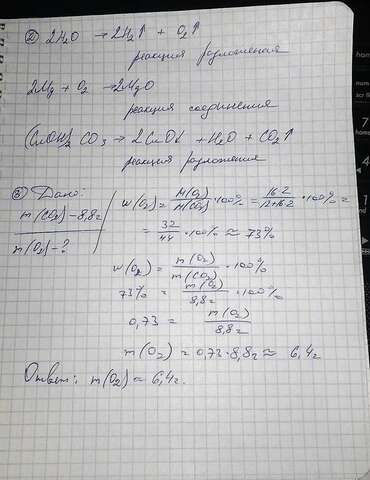 ② 2H₂O → 2H₂↑ + O₂↑
реакция разложения
2Mg + O₂ → 2MgO
реакция соединения
(CuOH)₂CO₃ → 2CuO↓ + H₂O + CO₂↑
реакция разложения
③ Дано:
m(CO₂) - 8,8г
m(O₂) - ?
w(O₂) = M(O₂)/M(CO₂) · 100% = 16·2/12+16·2 · 100% =
= 32/44 · 100% ≈ 73%
w(O₂) = m(O₂)/m(CO₂) · 100%
73% = m(O₂)/8,8г · 100%
0,73 = m(O₂)/8,8г
m(O₂) = 0,73 · 8,8г ≈ 6,4г
Ответ: m(O₂) = 6,4г.